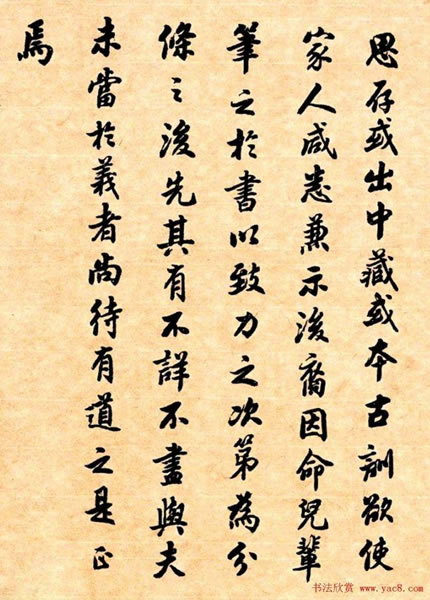 思存或出中藏或本古訓欲使
家人咸悉兼示後裔因命兒輩
筆之於書以致力之次第為分
條之後先其有不詳不盡與夫
未當於義者尚待有道之是正
焉
书法欣赏 www.yac8.com